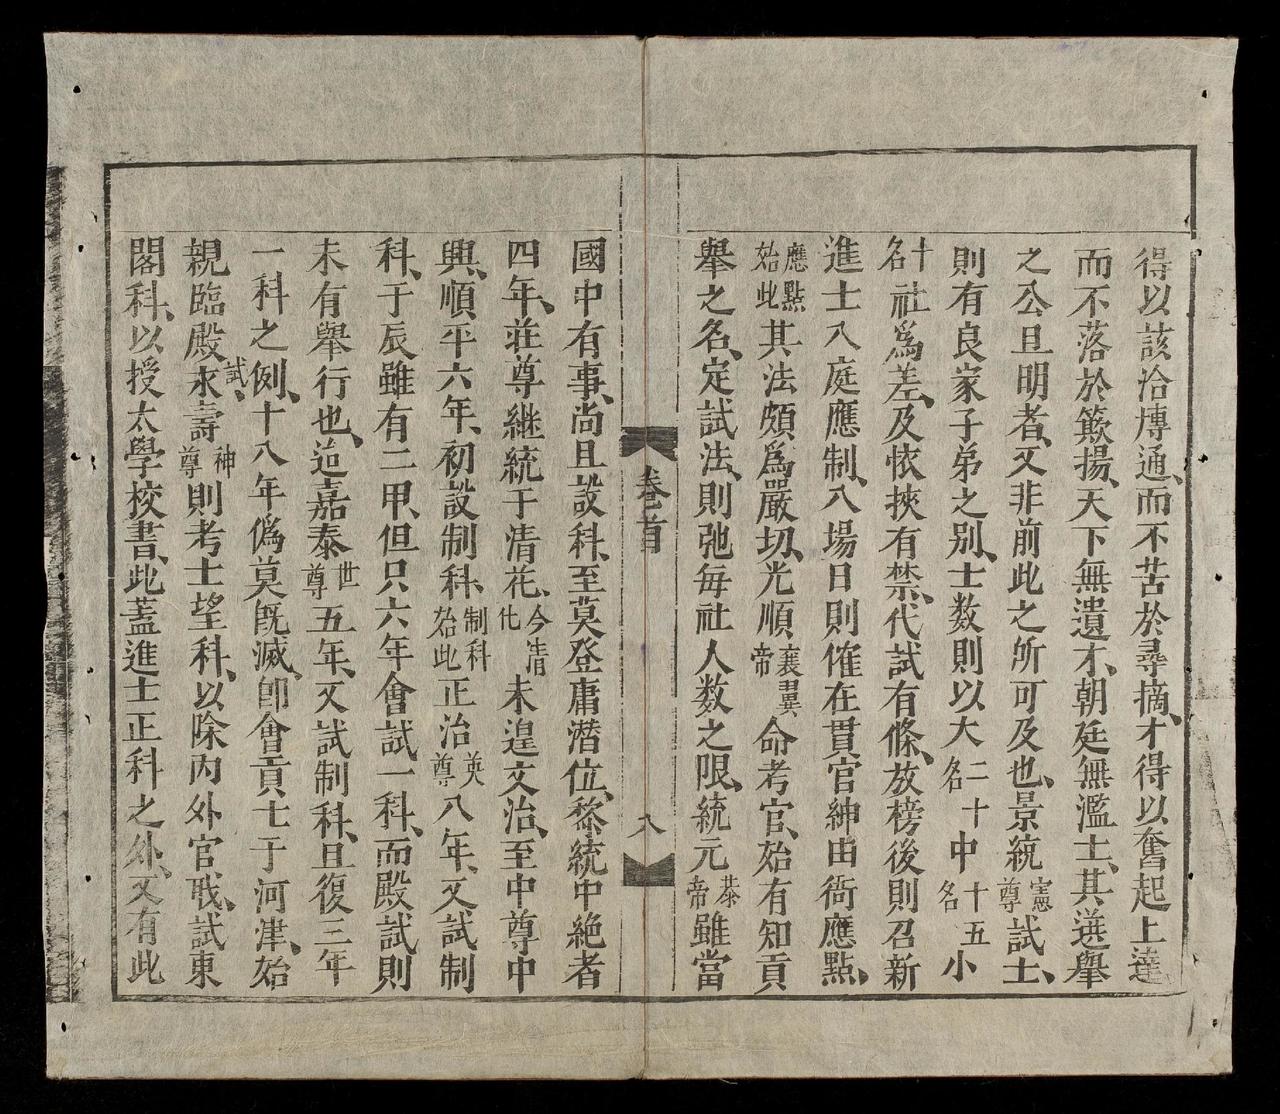 得以該洽博通、而不苦於尋摘、才得以奮起上達
而不落於簸揚、天下無遺才、朝廷無濫士、其選舉
之公且明者、又非前此之所可及也、景統憲尊試士、
則有良家子弟之別、士數則以大二十名中十五名小
十名社爲差、及懷挾有禁、代試有條、放榜後則召新
進士入庭應制、入場日則催在貫官紳由衙應點、
應點始此其法頗爲嚴切、光順襄翼帝命考官、始有知貢
舉之名、定試法、則弛每社人数之限、統元恭帝雖當
卷首
八
國中有事、尚且設科、至莫登庸潛位、黎統中絶者
四年、莊尊継統于清花、今清化未遑文治、至中尊中
興、順平六年、初設制科、制科始此正治英尊八年、又試制
科、于辰雖有二甲、但只六年會試一科、而殿試則
未有舉行也、迨嘉泰世尊五年、又試制科、且復三年
一科之例、十八年僞莫旣滅、卽會貢士于河津、始
親臨殿試、永壽神尊則考士望科、以除內外官戝、試東
閣科、以授太學校書、此蓋進士正科之外、又有此